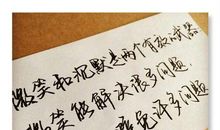 微笑和沉默是两个有效的武器
微笑能解决很多问题
避免许多问题